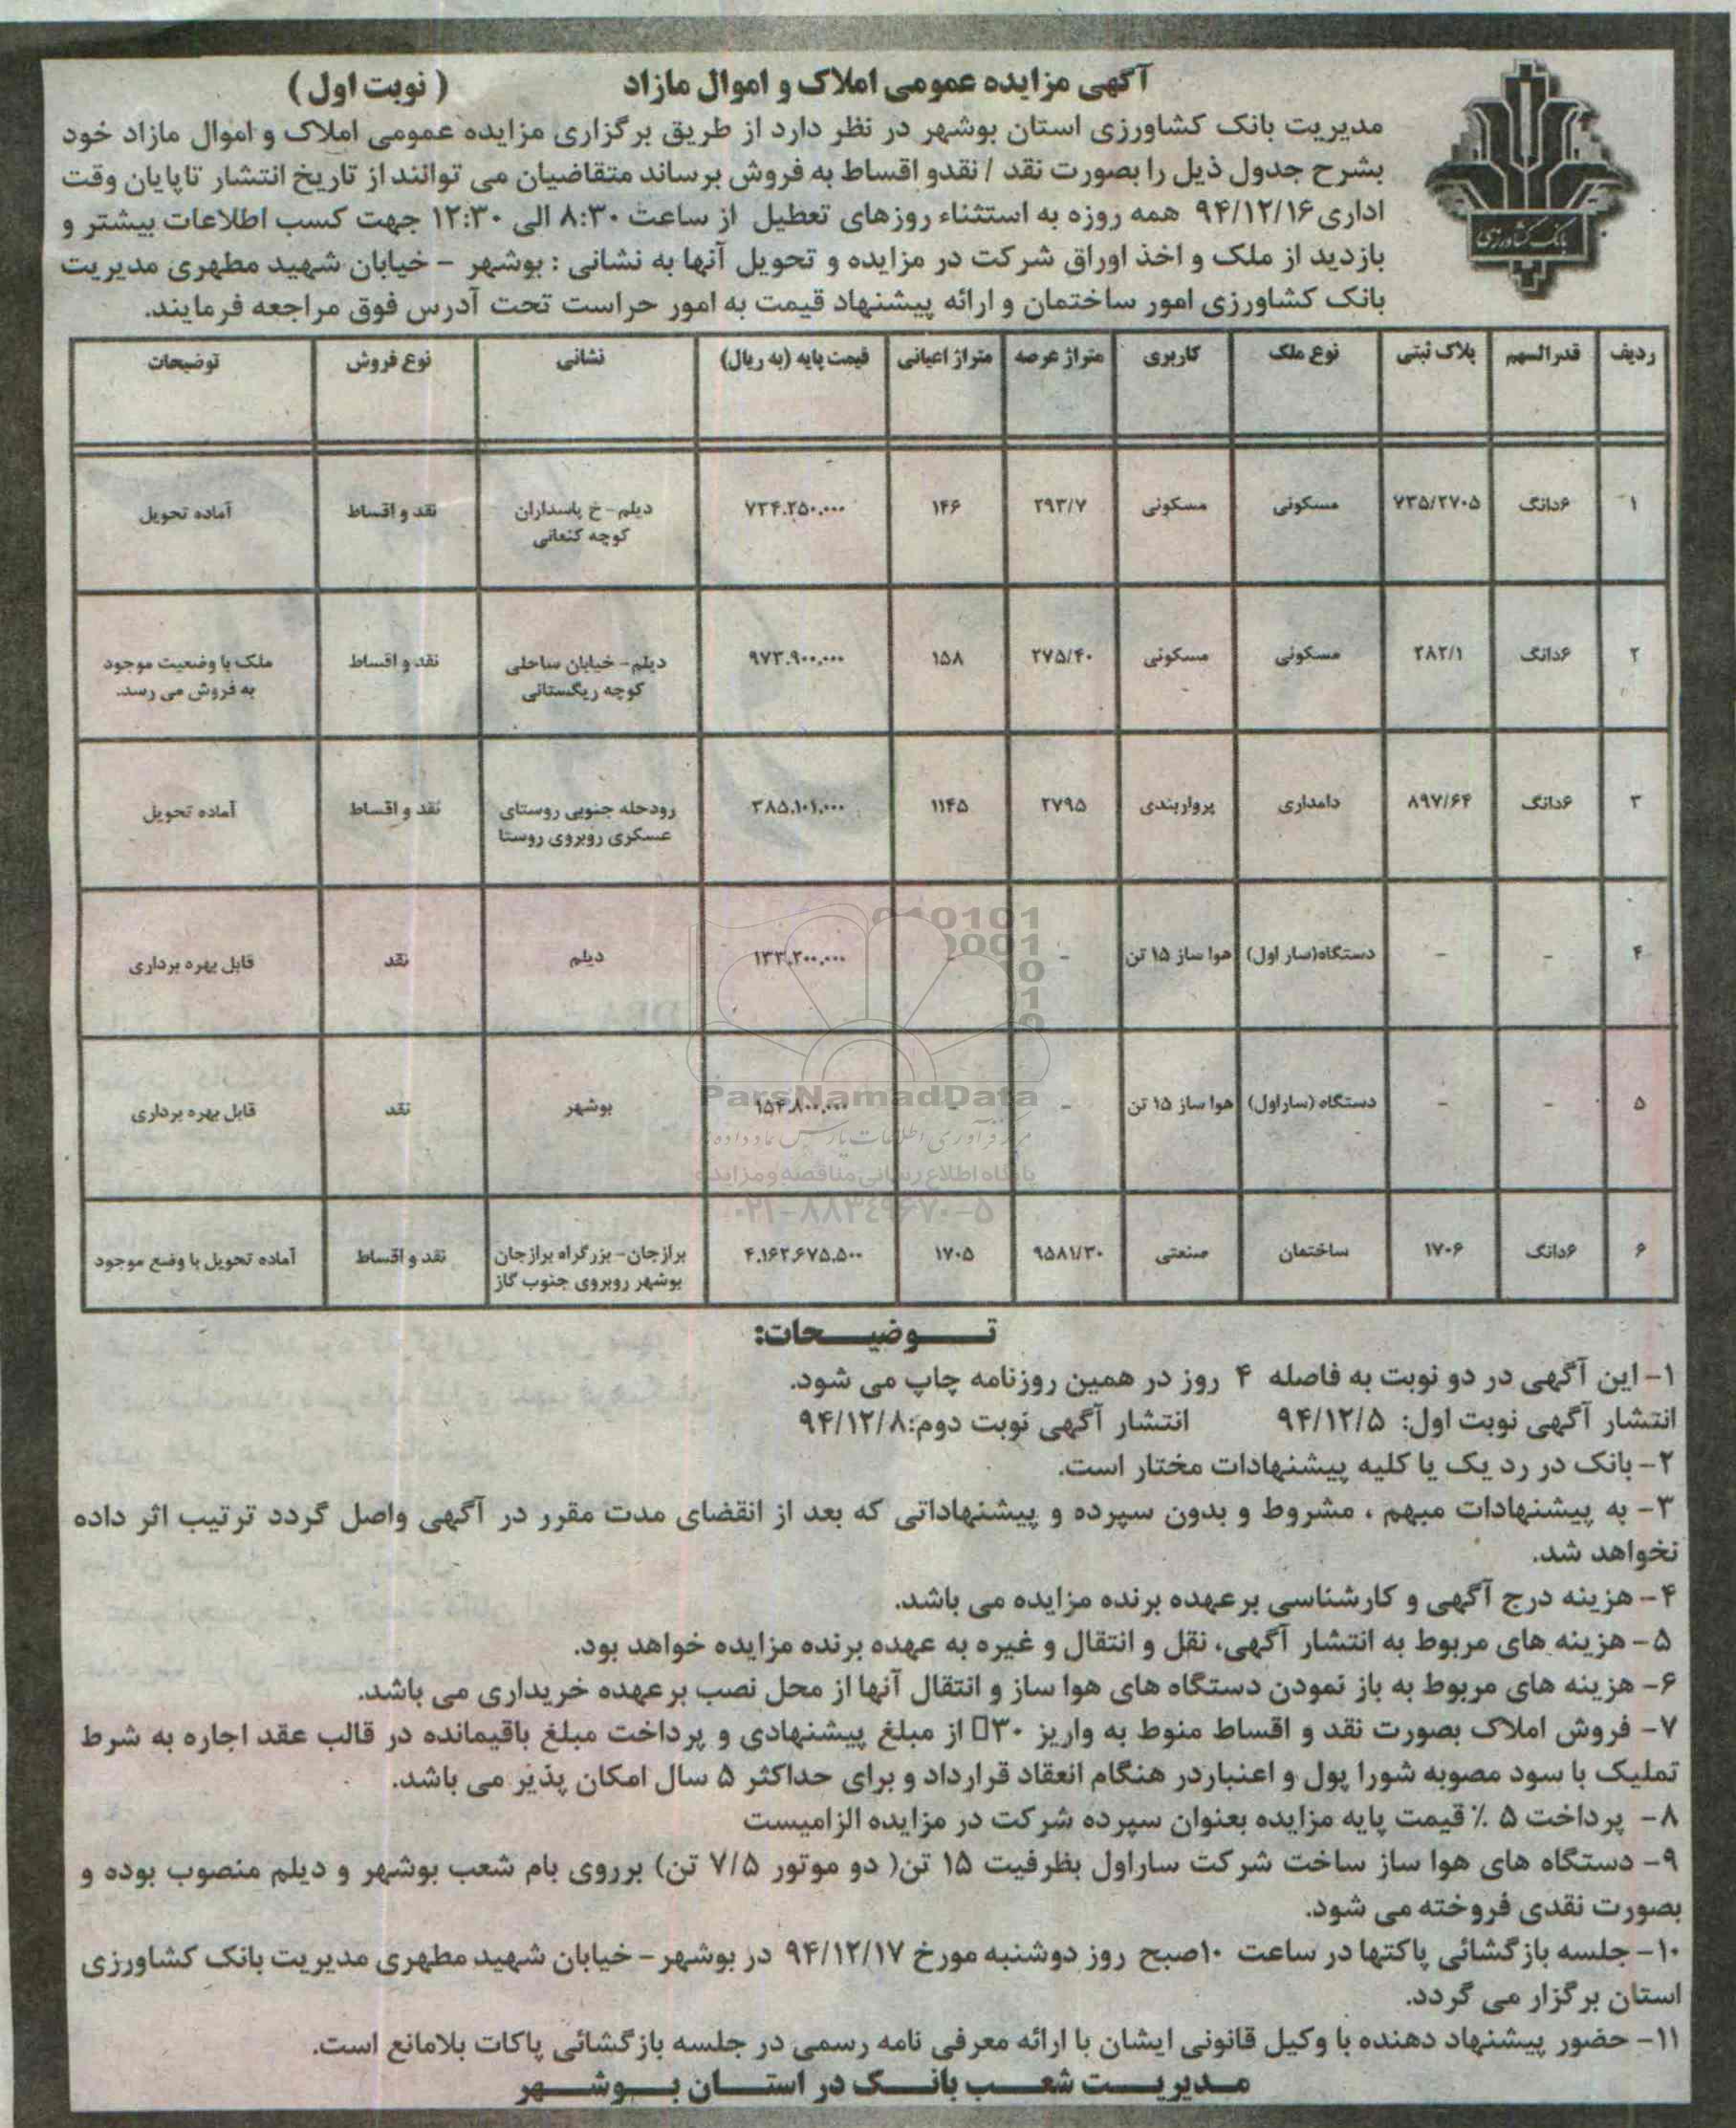 آگهی مزایده عمومی املاک و اموال مازاد (نوبت اول)
بانک کشاورزی
مدیریت بانک کشاورزی استان بوشهر در نظر دارد از طریق برگزاری مزایده عمومی املاک و اموال مازاد خود
بشرح جدول ذیل را بصورت نقد / نقدو اقساط به فروش برساند متقاضیان می توانند از تاریخ انتشار تاپایان وقت
اداری ۹۴/۱۲/۱۶ همه روزه به استثناء روزهای تعطیل از ساعت ۸:۳۰ الی ۱۲:۳۰ جهت کسب اطلاعات بیشتر و
بازدید از ملک و اخذ اوراق شرکت در مزایده و تحویل آنها به نشانی : بوشهر - خیابان شهید مطهری مدیریت
بانک کشاورزی امور ساختمان و ارائه پیشنهاد قیمت به امور حراست تحت آدرس فوق مراجعه فرمایند.
ردیف قدرالسهم پلاک ثبتی نوع ملک کاربری متراژ عرصه متراژ اعیانی قیمت پایه (به ریال) نشانی نوع فروش توضیحات
۱ ۶دانگ ۷۳۵/۲۷۰۵ مسکونی مسکونی ۲۹۳/۷ ۱۴۶ ۷۳۴.۲۵۰.۰۰۰ دیلم- خ پاسداران نقد و اقساط آماده تحویل
کوچه کنعانی
۲ ۶دانگ ۲۸۲/۱ مسکونی مسکونی ۲۷۵/۴۰ ۱۵۸ ۹۷۳.۹۰۰.۰۰۰ دیلم- خیابان ساحلی نقد و اقساط ملک با وضعیت موجود
کوچه ریگستانی به فروش می رسد.
۳ ۶دانگ ۸۹۷/۶۴ دامداری پرواربندی ۲۷۹۵ ۱۱۴۵ ۳۸۵.۱۰۱.۰۰۰ رودحله جنوبی روستای نقد و اقساط آماده تحویل
عسکری روبروی روستا
۴ - - دستگاه(سار اول) هوا ساز ۱۵ تن - - ۱۳۳.۲۰۰.۰۰۰ دیلم نقد قابل بهره برداری
۵ - - دستگاه (ساراول) هوا ساز ۱۵ تن - - ۱۵۴.۸۰۰.۰۰۰ بوشهر نقد قابل بهره برداری
۶ ۶دانگ ۱۷۰۶ ساختمان صنعتی ۹۵۸۱/۳۰ ۱۷۰۵ ۴.۱۶۲.۶۷۵.۵۰۰ برازجان- بزرگراه برازجان نقد و اقساط آماده تحویل با وضع موجود
بوشهر روبروی جنوب گاز
ParsNamadData
مرکز فرآوری اطلاعات پارس نماد داده ها
پایگاه اطلاع رسانی مناقصه و مزایده
۰۲۱-۸۸۳۴۹۶۷۰-۵
توضیحات:
۱- این آگهی در دو نوبت به فاصله ۴ روز در همین روزنامه چاپ می شود.
انتشار آگهی نوبت اول: ۹۴/۱۲/۵ انتشار آگهی نوبت دوم:۹۴/۱۲/۸
۲- بانک در رد یک یا کلیه پیشنهادات مختار است.
۳- به پیشنهادات مبهم ، مشروط و بدون سپرده و پیشنهاداتی که بعد از انقضای مدت مقرر در آگهی واصل گردد ترتیب اثر داده
نخواهد شد.
۴- هزینه درج آگهی و کارشناسی برعهده برنده مزایده می باشد.
۵- هزینه های مربوط به انتشار آگهی، نقل و انتقال و غیره به عهده برنده مزایده خواهد بود.
۶- هزینه های مربوط به باز نمودن دستگاه های هوا ساز و انتقال آنها از محل نصب برعهده خریداری می باشد.
۷- فروش املاک بصورت نقد و اقساط منوط به واریز ۳۰□ از مبلغ پیشنهادی و پرداخت مبلغ باقیمانده در قالب عقد اجاره به شرط
تملیک با سود مصوبه شورا پول و اعتباردر هنگام انعقاد قرارداد و برای حداکثر ۵ سال امکان پذیر می باشد.
۸- پرداخت ۵ ٪ قیمت پایه مزایده بعنوان سپرده شرکت در مزایده الزامیست
۹- دستگاه های هوا ساز ساخت شرکت ساراول بظرفیت ۱۵ تن( دو موتور ۷/۵ تن) برروی بام شعب بوشهر و دیلم منصوب بوده و
بصورت نقدی فروخته می شود.
۱۰- جلسه بازگشائی پاکتها در ساعت ۱۰صبح روز دوشنبه مورخ ۹۴/۱۲/۱۷ در بوشهر - خیابان شهید مطهری مدیریت بانک کشاورزی
استان برگزار می گردد.
۱۱- حضور پیشنهاد دهنده با وکیل قانونی ایشان با ارائه معرفی نامه رسمی در جلسه بازگشائی پاکات بلامانع است.
مدیریت شعب بانک در استان بوشهر